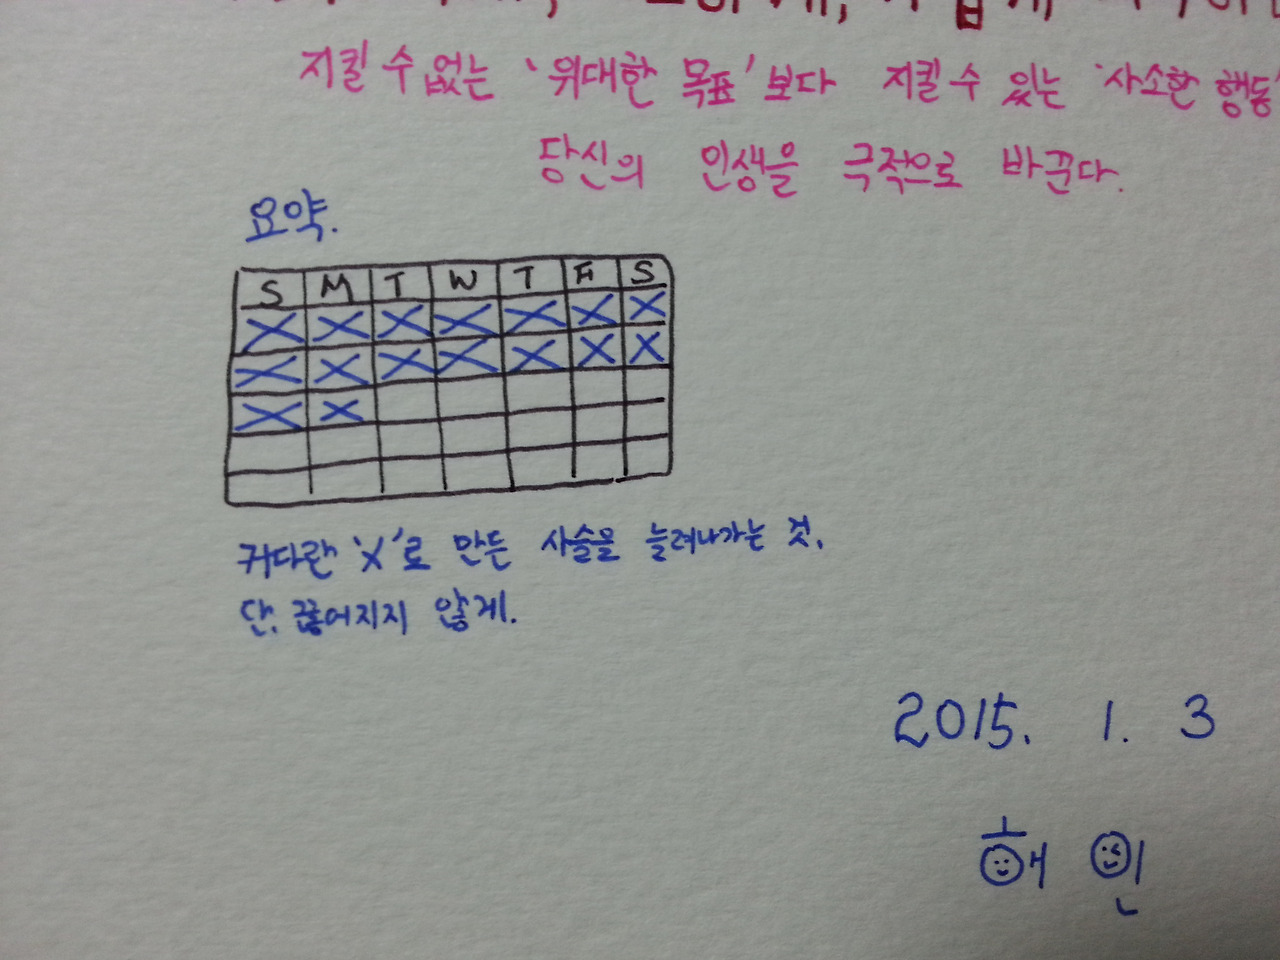 지킬 수 없는 '위대한 목표'보다 지킬 수 있는 '사소한 행동'
당신의 인생을 극적으로 바꾼다.
요약.
S M T W T F S
X X X X X X X
X X X X X X X
X X
커다란 'X'로 만든 사슬을 늘려나가는 것.
단, 끊어지지 않게.
2015. 1. 3
혜인